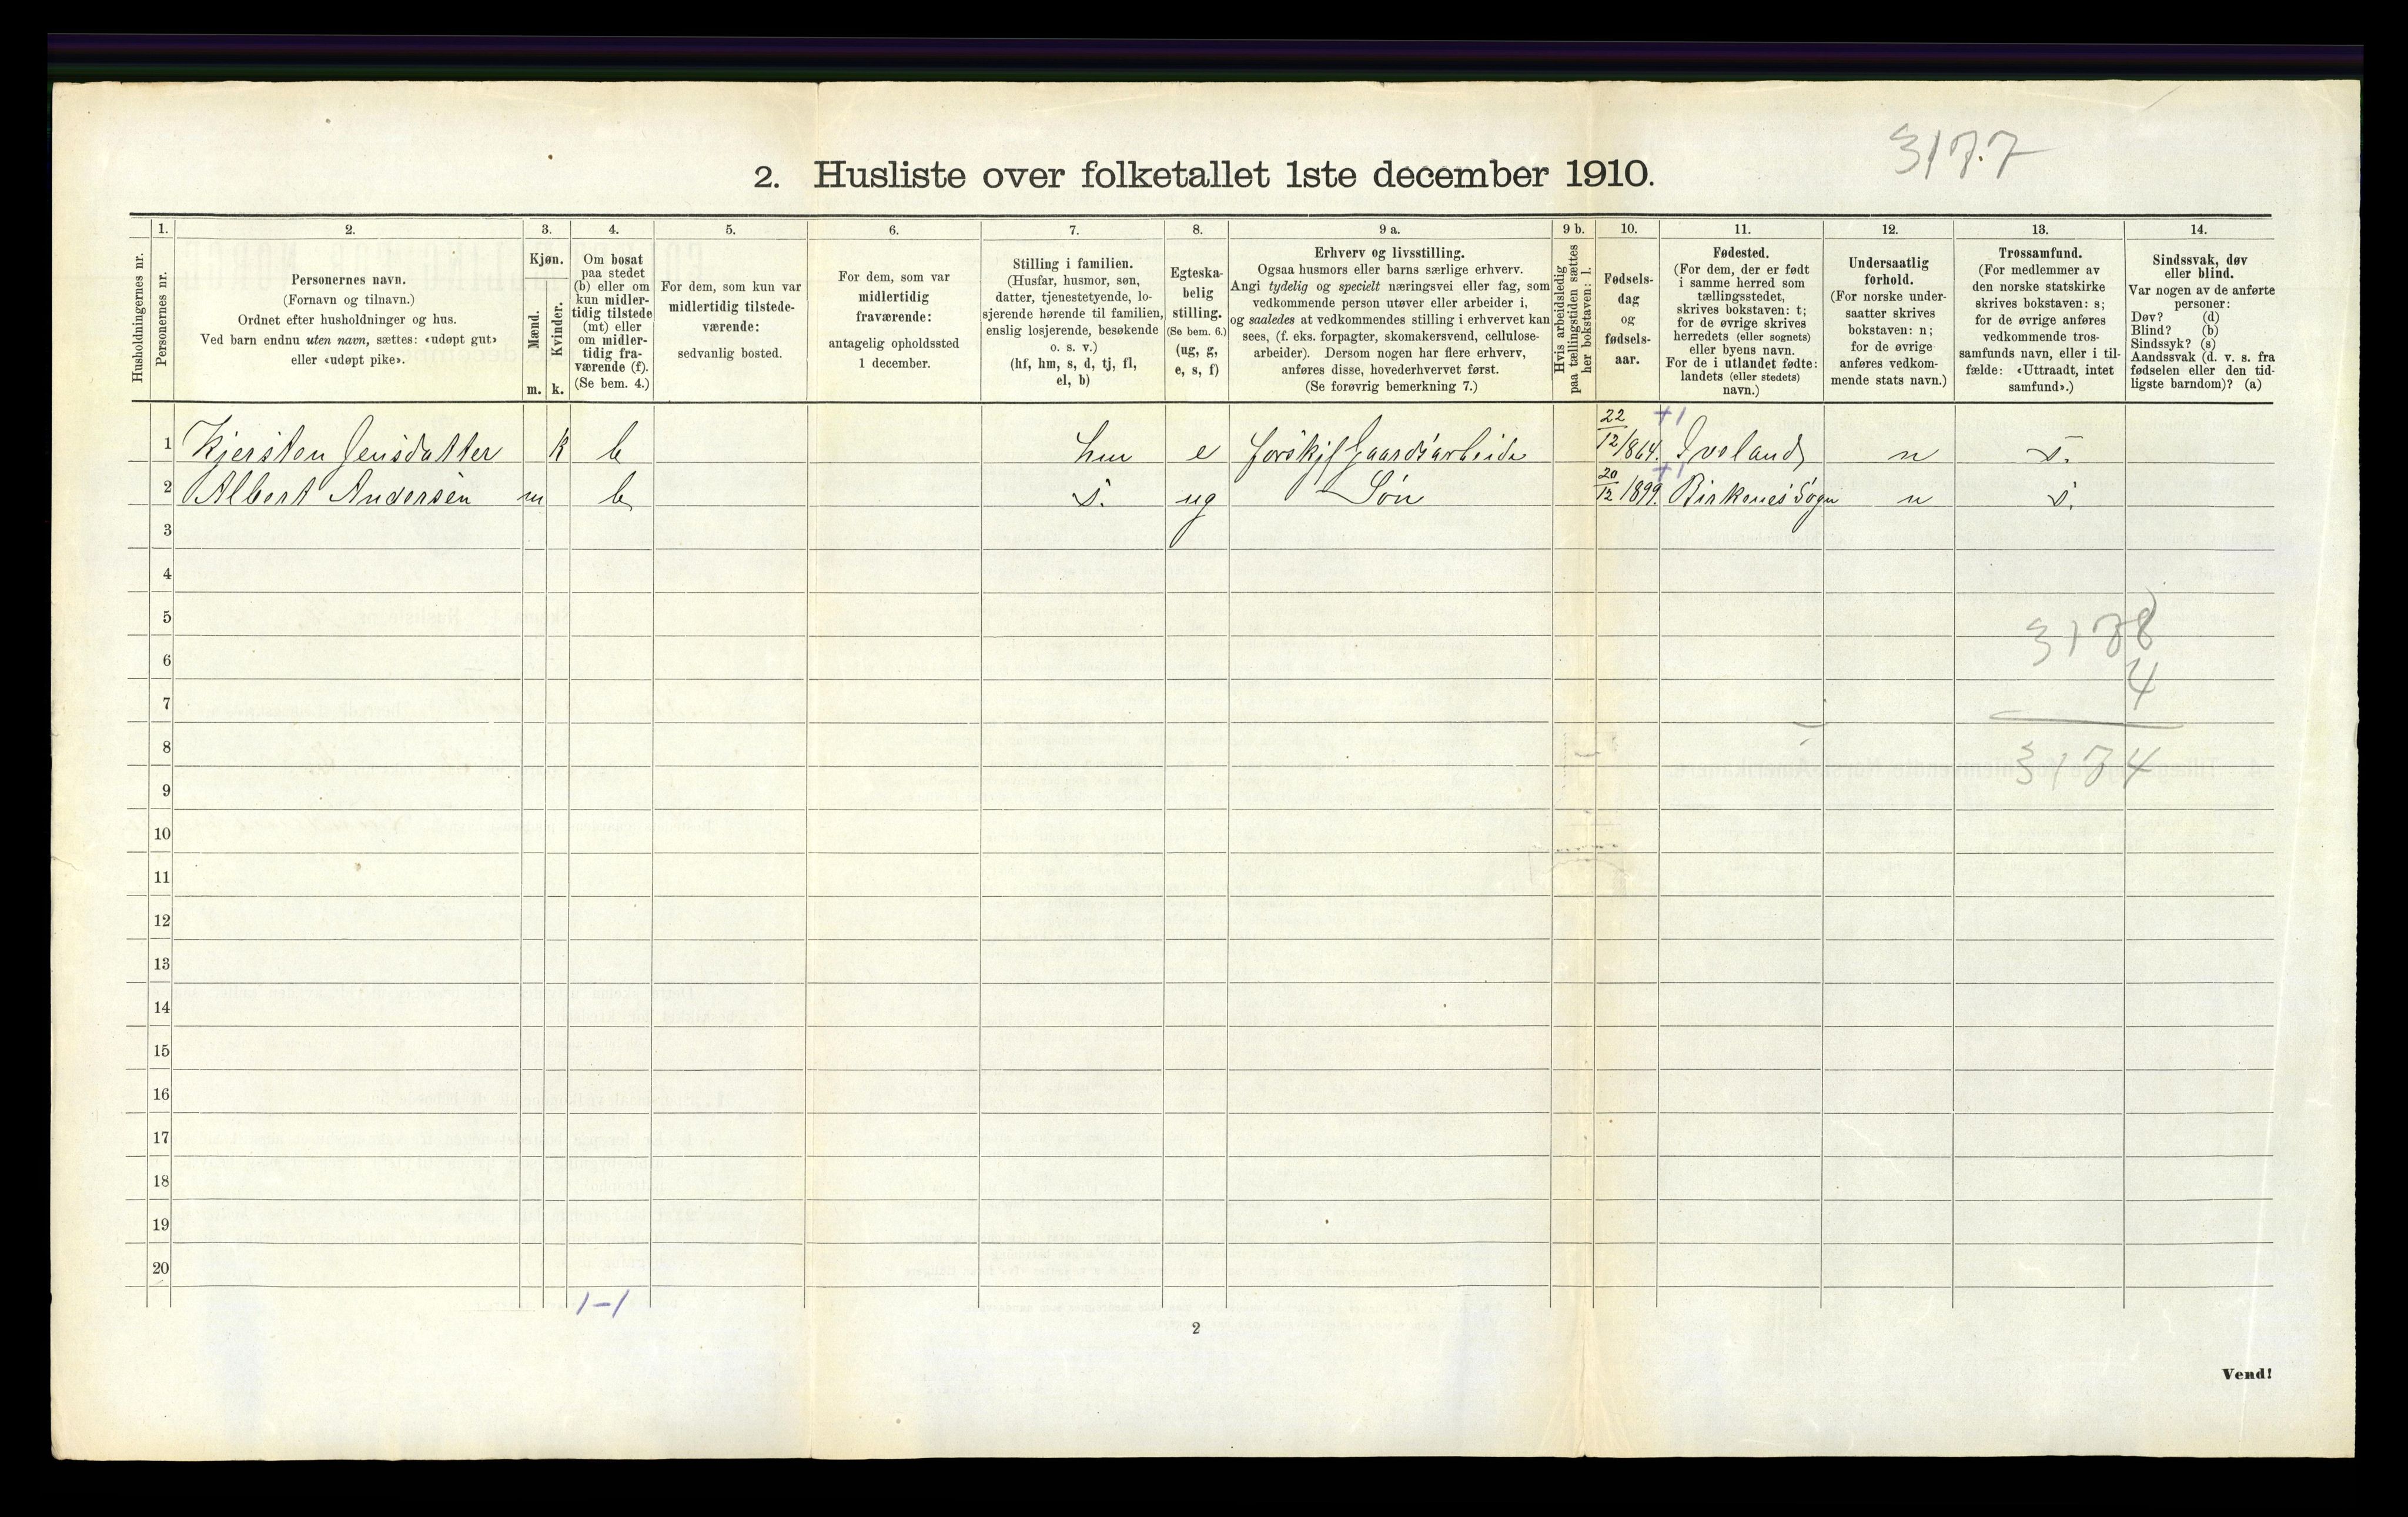 3177
2. Husliste over folketallet 1ste december 1910.
Husholdningernes nr.
1.
Personernes nr.
2.
Personernes navn.
(Fornavn og tilnavn.)
Ordnet efter husholdninger og hus.
Ved barn endnu uten navn, sættes: «udøpt gut»
eller «udøpt pike».
3.
Kjøn.
Mænd.
m.
Kvinder.
k.
4.
Om bosat
paa stedet
(b) eller om
kun midler-
tidig tilstede
(mt) eller
om midler-
tidig fra-
værende (f).
(Se bem. 4.)
5.
For dem, som kun var
midlertidig tilstede-
værende:
sedvanlig bosted.
6.
For dem, som var
midlertidig
fraværende:
antagelig opholdssted
1 december.
7.
Stilling i familien.
(Husfar, husmor, søn,
datter, tjenestetyende, lo-
sjerende hørende til familien,
enslig losjerende, besøkende
o. s. v.)
(hf, hm, s, d, tj, fl,
el, b)
8.
Egteska-
belig
stilling.
(Se bem. 6.)
(ug, g,
e, s, f)
9 a.
Erhverv og livsstilling.
Ogsaa husmors eller barns særlige erhverv.
Angi tydelig og specielt næringsvei eller fag, som
vedkommende person utøver eller arbeider i,
og saaledes at vedkommendes stilling i erhvervet kan
sees, (f. eks. forpagter, skomakersvend, cellulose-
arbeider). Dersom nogen har flere erhverv,
anføres disse, hovederhvervet først.
(Se forøvrig bemerkning 7.)
9 b.
Hvis arbeidsledig
paa tællingstiden sættes
her bokstaven: l.
10.
Fødsels-
dag
og
fødsels-
aar.
11.
Fødested.
(For dem, der er født
i samme herred som
tællingsstedet,
skrives bokstaven: t;
for de øvrige skrives
herredets (eller sognets)
eller byens navn.
For de i utlandet fødte:
landets (eller stedets)
navn.)
12.
Undersaatlig
forhold.
(For norske under-
saatter skrives
bokstaven: n;
for de øvrige
anføres vedkom-
mende stats navn.)
13.
Trossamfund.
(For medlemmer av
den norske statskirke
skrives bokstaven: s;
for de øvrige anføres
vedkommende tros-
samfunds navn, eller i til-
fælde: «Uttraadt, intet
samfund».)
14.
Sindssvak, døv
eller blind.
Var nogen av de anførte
personer:
Døv? (d)
Blind? (b)
Sindssyk? (s)
Aandssvak (d. v. s. fra
fødselen eller den tid-
ligste barndom)? (a)
1 Kjersten Jensdatter k b hm e forskjl Gaardsarbeide 22/12/864. +1 Iveland n s.
2 Albert Andersen m b s. ug Søn 20/12 1899. +1 Birkenes Sogn n s.
3
4
5
6
7
8
9
10
11
12
13
14
15
16
17
18
19
20
3178
4
3174
1-1
2
Vend!